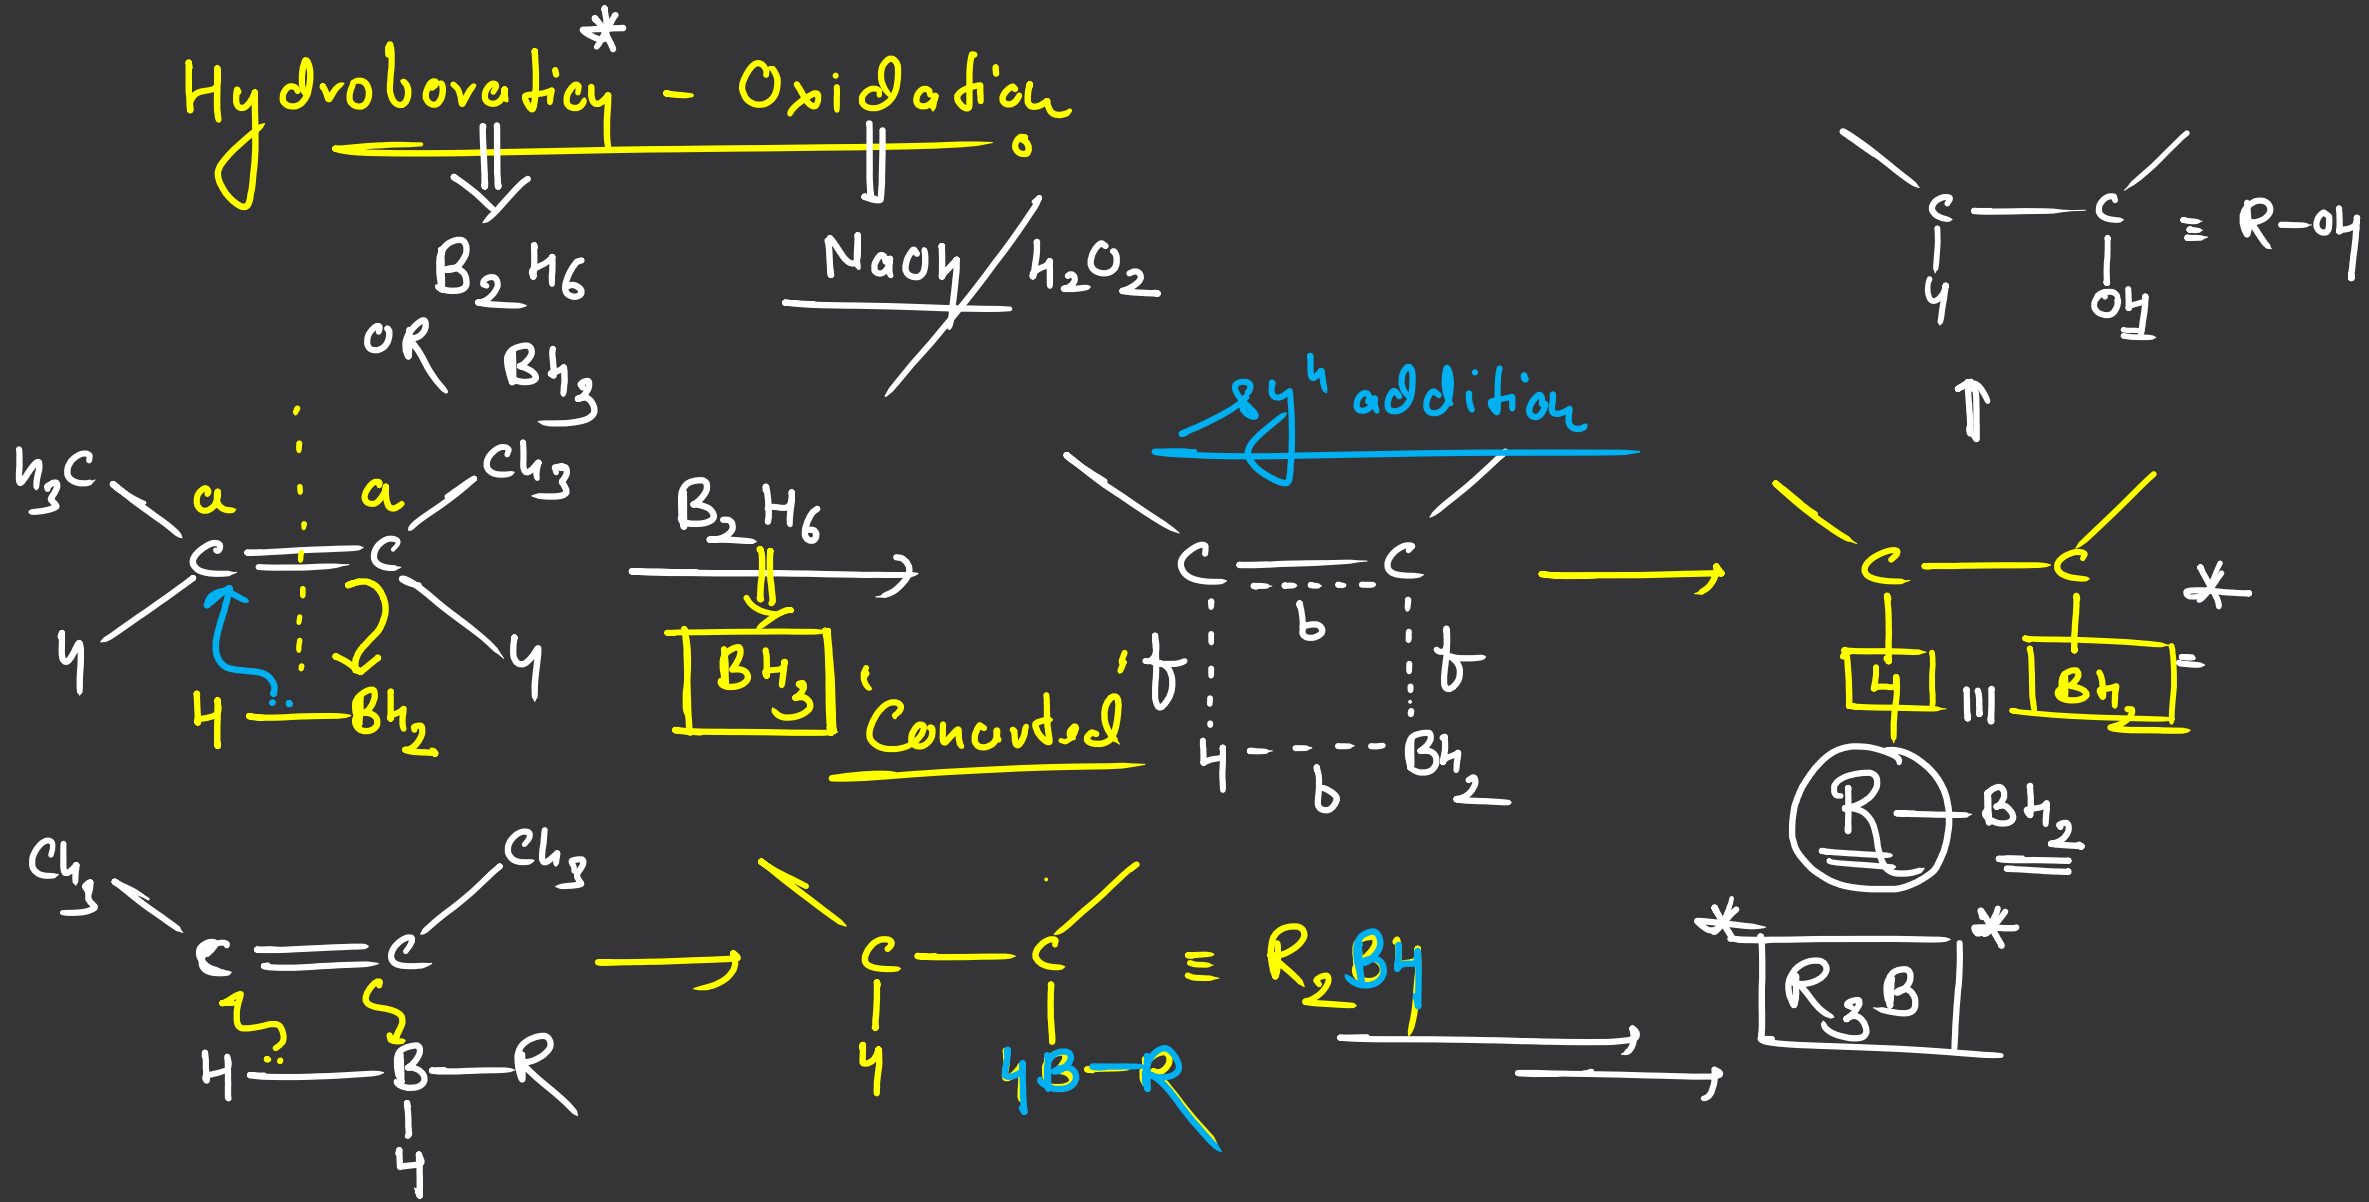 Hydroboration* - Oxidation
B2H6
NaOH / H2O2
OR BH3
C — C ≡ R-OH
H OH
syn addition
H3C a a CH3
C = C
H H
H — BH2
B2H6
BH3
"Concerted"
C — C
b
f f
H BH2
b
C — C *
H BH2
R — BH2
CH3 CH3
C = C
H — B — R
H
C — C ≡ R2BH
H HB — R
* R3B *